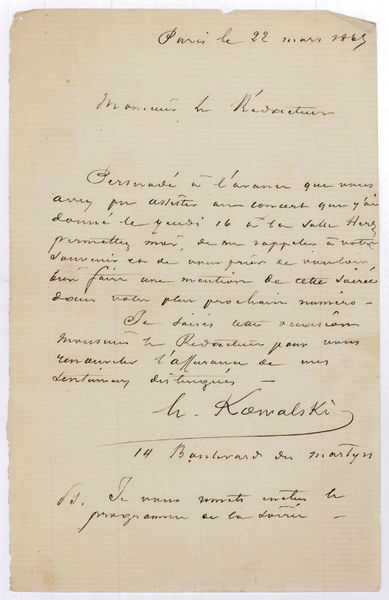 Paris le 22 mars 1865
Monsieur le Rédacteur
Persuadé à l'avance que vous
avez pu assister au concert que j'ai
donné le jeudi 16 à la salle Herz
permettez moi, de me rappeler à votre
souvenir et de vous prier de vouloir
bien faire une mention de cette soirée
dans votre plus prochain numero -
Je saisis cette occasion
Monsieur le Rédacteur pour vous
renouveler l'assurance de mes
sentiments distingués -
H. Kowalski
14 Boulevard des martyrs
Ps. Je vous mets inclus le
programme de la soirée -